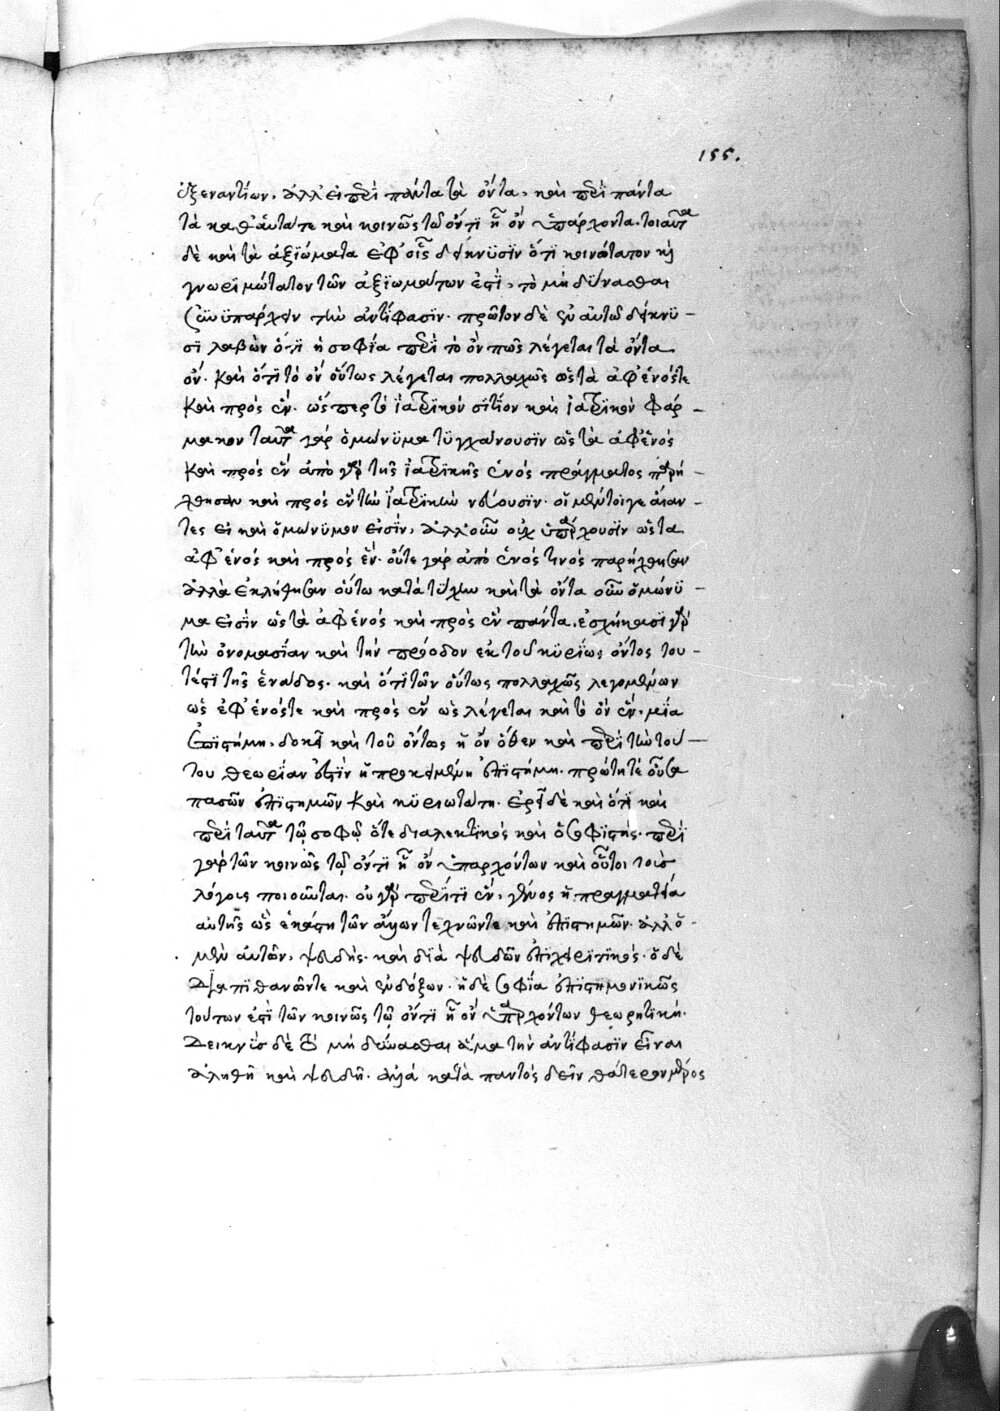 155.
ἐξεναντίων, ἀλλ' εἰ περὶ πάντα τὰ ὄντα, καὶ περὶ πάντα
τὰ καθ' αὑτά τε καὶ κοινῶς τῷ ὄντι ᾗ ὂν ὑπάρχοντα. τοιαῦτα
δὲ καὶ τὰ ἀξιώματα ἐφ' οἷς δείκνυσϊν ὅτι κοινότατον καὶ
γνωριμώτατον τῶν ἀξιωμάτων ἐστὶ, τὸ μὴ δύνασθαι
συνϋπάρχειν τὴν ἀντίφασϊν. πρῶτον δὲ ἐν αὐτῷ δείκνϋ-
σϊ λαβὼν ὅτι ἡ σοφία περὶ τὸ ὂν πῶς λέγεται τὰ ὄντα
ὄν. καὶ ὅτι τὸ ὂν οὕτως λέγεται πολλαχῶς ὡς τὰ ἀφ' ἑνός τε
καὶ πρὸς ἕν. ὥσπερ τὸ ἰατρικὸν σϊτίον καὶ ἰατρικὸν φάρ-
μακον ταῦτα γὰρ ὁμώνϋμα τϋγχάνουσϊν ὡς τὰ ἀφ' ἑνὸς
καὶ πρὸς ἓν ἀπὸ γὰρ τῆς ἰατρϊκῆς ἑνὸς πράγματος παρή-
χθησαν καὶ πρὸς ἓν τὴν ἰατρϊκὴν νεύουσϊν. οἱ μέντοιγε αἴαν-
τες εἰ καὶ ὁμώνϋμον εἰσὶν, ἀλλ' οὖν οὐχ ὑπάρχουσϊν ὡς τὰ
ἀφ' ἑνὸς καὶ πρὸς ἕν. οὔτε γὰρ ἀπὸ ἑνός τινὸς παρήχθησαν
ἀλλὰ ἐκλήθησαν οὕτω κατὰ τύχην καὶ τὰ ὄντα οὖν ὁμώνϋ-
μα εἰσὶν ὡς τὰ ἀφ' ἑνὸς καὶ πρὸς ἓν πάντα, ἐσχήκασϊ γὰρ
τὴν ὀνομασίαν καὶ τὴν πρόοδον ἐκ τοῦ κϋρίως ὄντος του-
τέστι τῆς ἑνάδος. καὶ ὅτι τῶν οὕτως πολλαχῶς λεγομένων
ὡς ἐφ' ἑνός τε καὶ πρὸς ἓν ὡς λέγεται καὶ τὸ ὂν ἕν. μία
ἐπϊστήμη, δοκεῖ καὶ τοῦ ὄντος ᾗ ὂν ὅθεν καὶ περὶ τὴν τού-
του θεωρίαν ἐστὶν ἡ προκειμένη ἐπϊστήμη. πρώτη τε οὖσα
πασῶν ἐπϊστημῶν καὶ κϋριωτάτη. ἐρεῖ δὲ καὶ ὅτι καὶ
περὶ ταῦτα τῷ σοφῷ ὅ τε διαλεκτϊκὸς καὶ ὁ σοφϊστής. περὶ
γὰρ τῶν κοινῶς τῷ ὄντι ᾗ ὂν ὑπαρχόντων καὶ οὗτοι τοὺς
λόγους ποιοῦνται. οὐ γὰρ περί τι ἕν, γένος ἡ πραγματεία
αὐτῆς ὡς ἑκάστη τῶν ἄλλων τεχνῶν τε καὶ ἐπϊστημῶν. ἀλλ' ὁ
μὲν αὐτῶν, ψευδὴς. καὶ διὰ ψευδῶν ἐπϊχειρϊτϊκός. ὁ δὲ
διὰ πϊθανῶν τε καὶ ἐνδόξων. ἡ δὲ σοφία ἐπϊστημονϊκῶς
τούτων ἐστὶ τῶν κοινῶς τῷ ὄντι ᾗ ὂν ὑπαρχόντων θεωρητϊκή.
Δεικνὺς δὲ τὸ μὴ δύνασθαι ἅμα τὴν ἀντίφασϊν εἶναι
ἀληθῆ καὶ ψευδῆ. ἀλλὰ κατὰ παντὸς δεῖν θάτερον μέρος